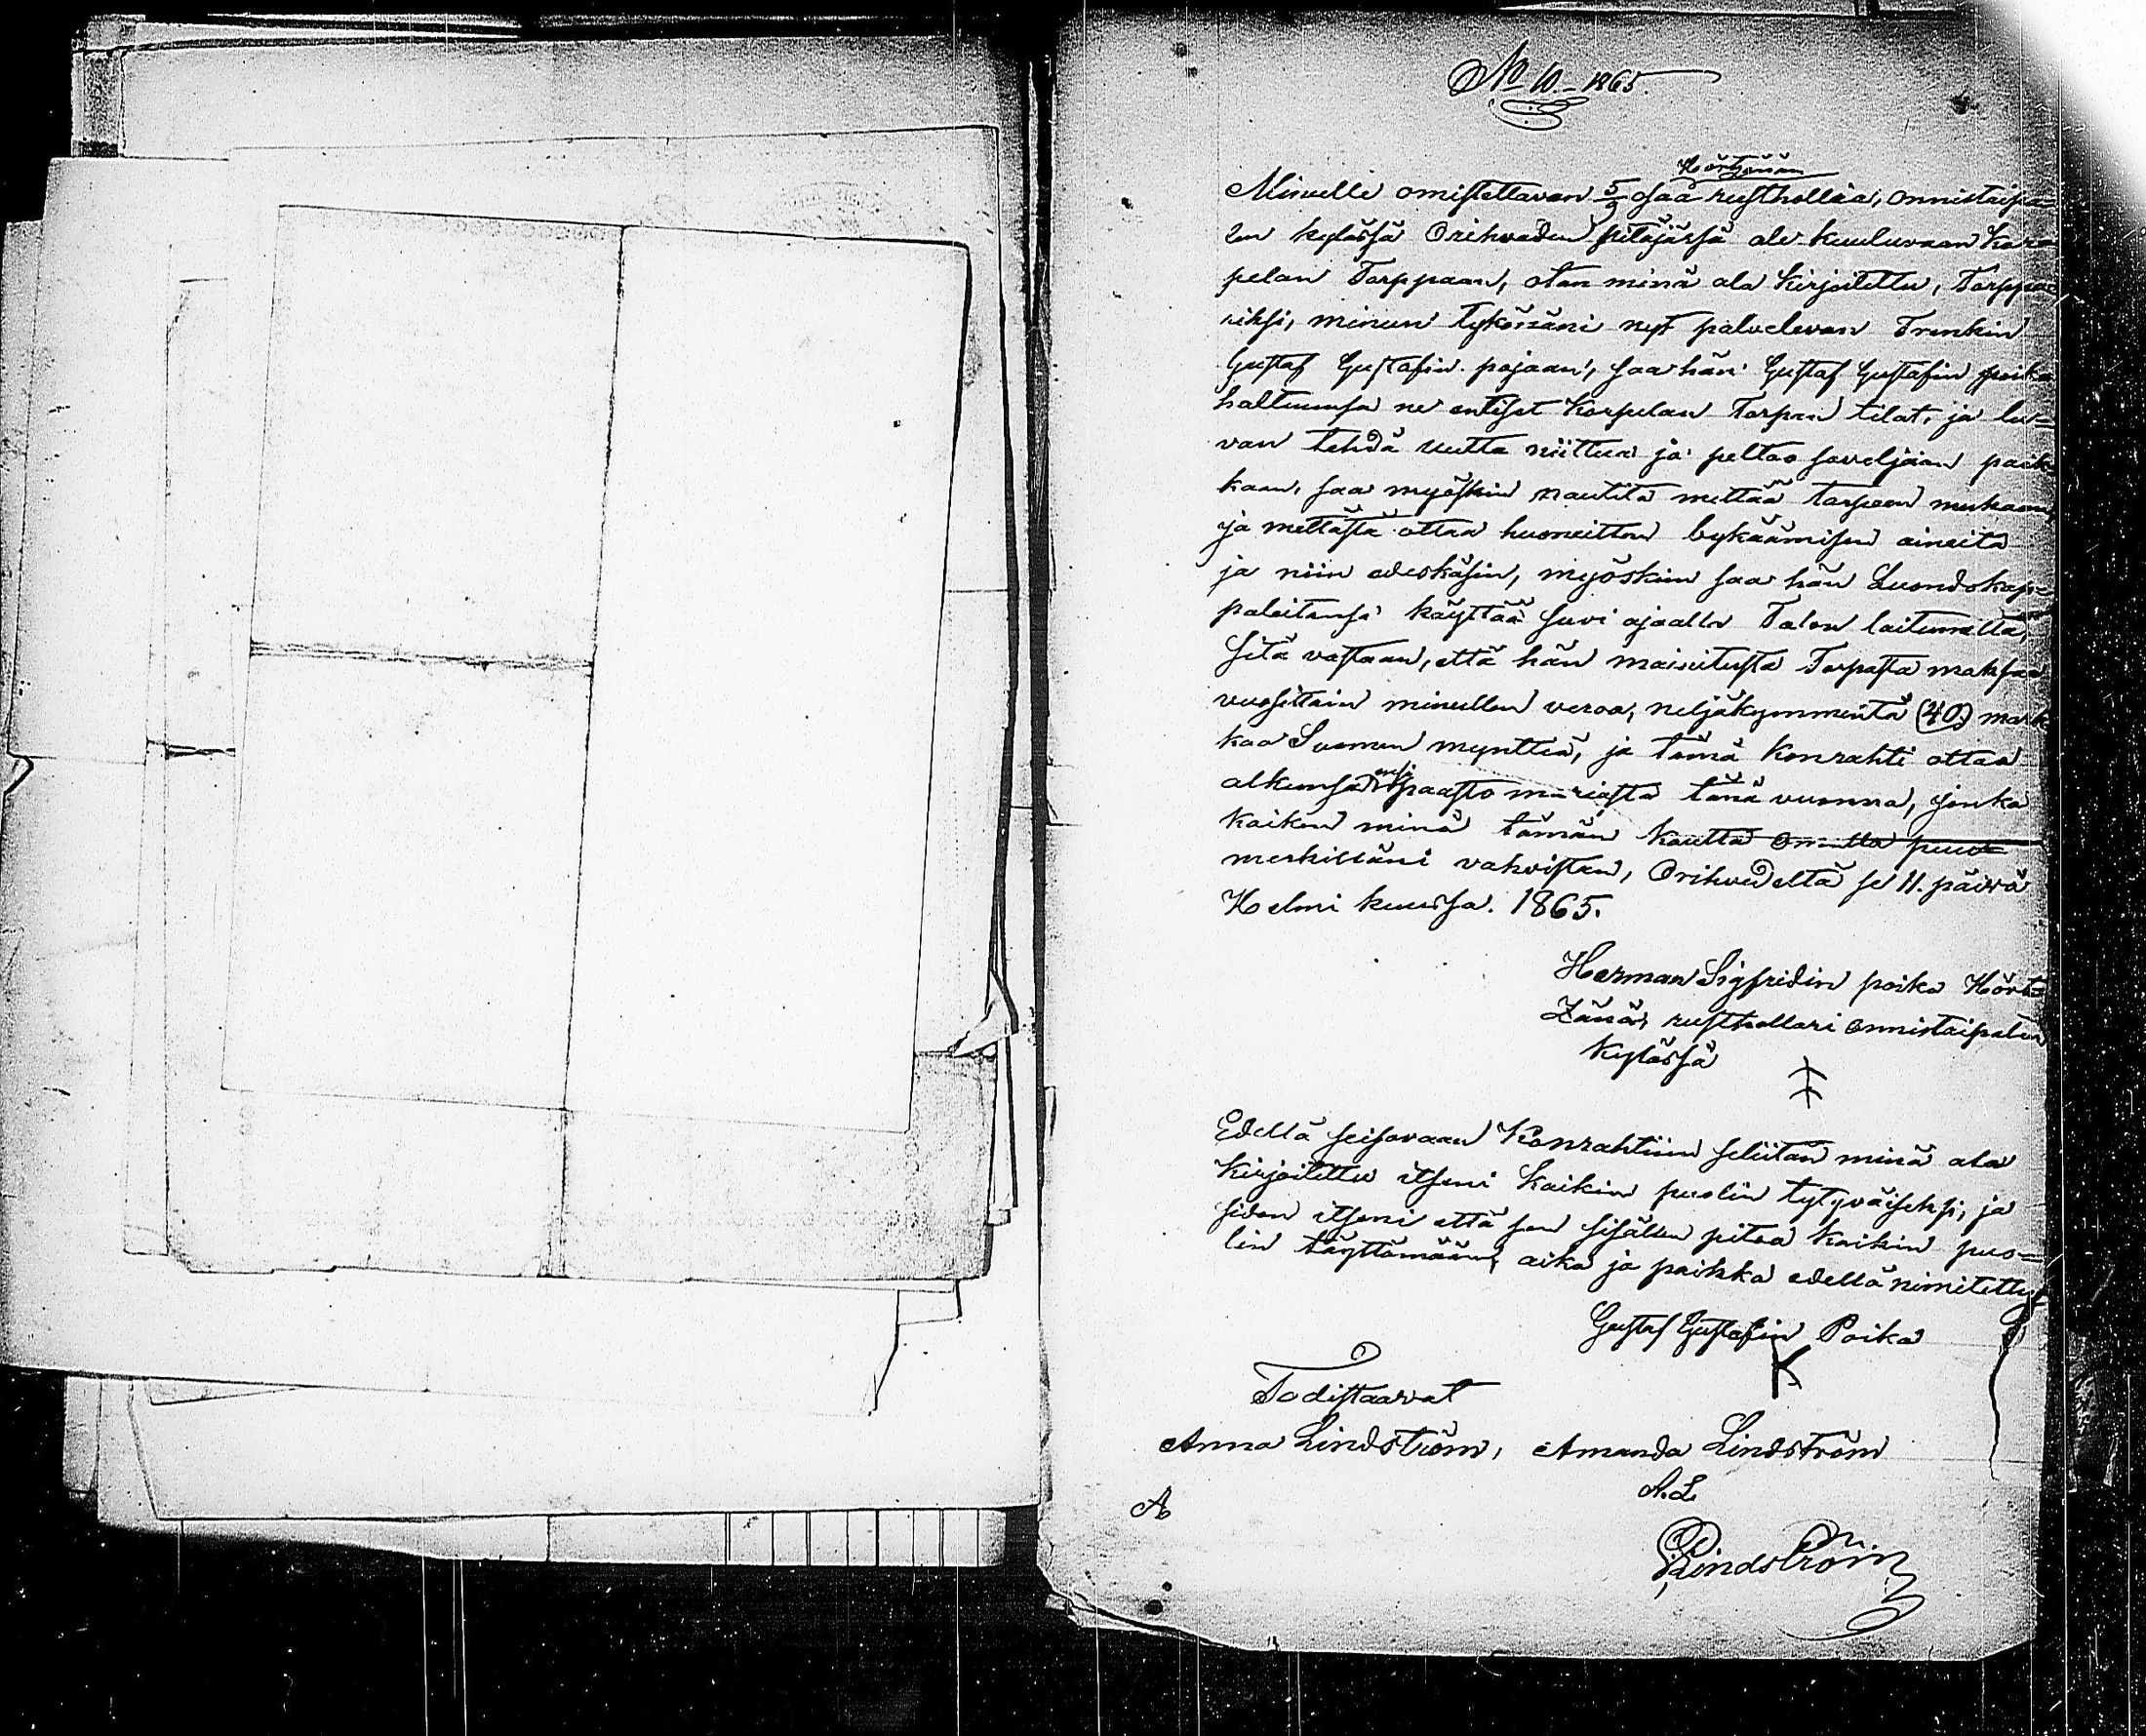 No 10.–1865.
Hörtzänän
Minulle omistettavan 5/9 osaa rusthollia, Onnistaipa=
len kylässä Orihveden pitäjässä ale kuuluvaan Kor=
pelan Torppaan, otan minä ala kirjoitettu, Torppa=
riksi, minun tykönäni nyt palvelevan Trenkin
Gustaf Gustafin pojaan, saa hän Gustaf Gustafin poika
haltuunsa ne entiset Korpelan Torpan tilat, ja lu=
van tehdä uutta niittua ja peltoo soveljaan paik
kaan, saa myöskin nautita mettää tarpeen mukaan,
ja mettästä ottaa huoneitten bykäämisen aineita
ja niin edeskäsin, myöskin saa hän Luondokap=
paleitansa käyttää suvi ajaalla Talon laitumella,
sitä vastaan, että hän mainitusta Torpasta maksaa
vuosittain minullen veroa, neljäkymmentä (40) mark
kaa Suomen mynttiä, ja tämä Konrahti ottaa
alkunsa ensi paasto mariasta tänä vuonna, jonka
kaiken minä tämän kautta omalla puu=
merkilläni vahvistan, Orihvedeltä se 11. päivä
Helmi kuussa. 1865.
Herman Sigfridin poika Hört=
zänä, rusthollari Onnistaipalen
kylässä
Edellä seisovaan Konrahtiin seliitän minä ala
kirjoitettu itseni kaikin puolin tytyväiseksi, ja
sidon itseni että sen sisällen pitoa kaikin puo=
lin täyttämään, aika ja paikka edellä nimitetty
Gustaf Gustafin Poika
K
Todistaavat
Anna Lindström, Amanda Lindström
A.L
A
Lindström